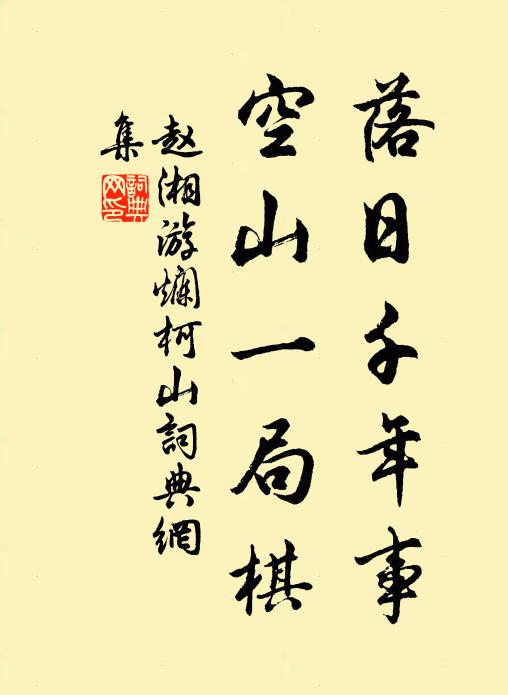 落日千年事
空山一局棋
赵湘游爛柯山詞典網
集
詞典
网印